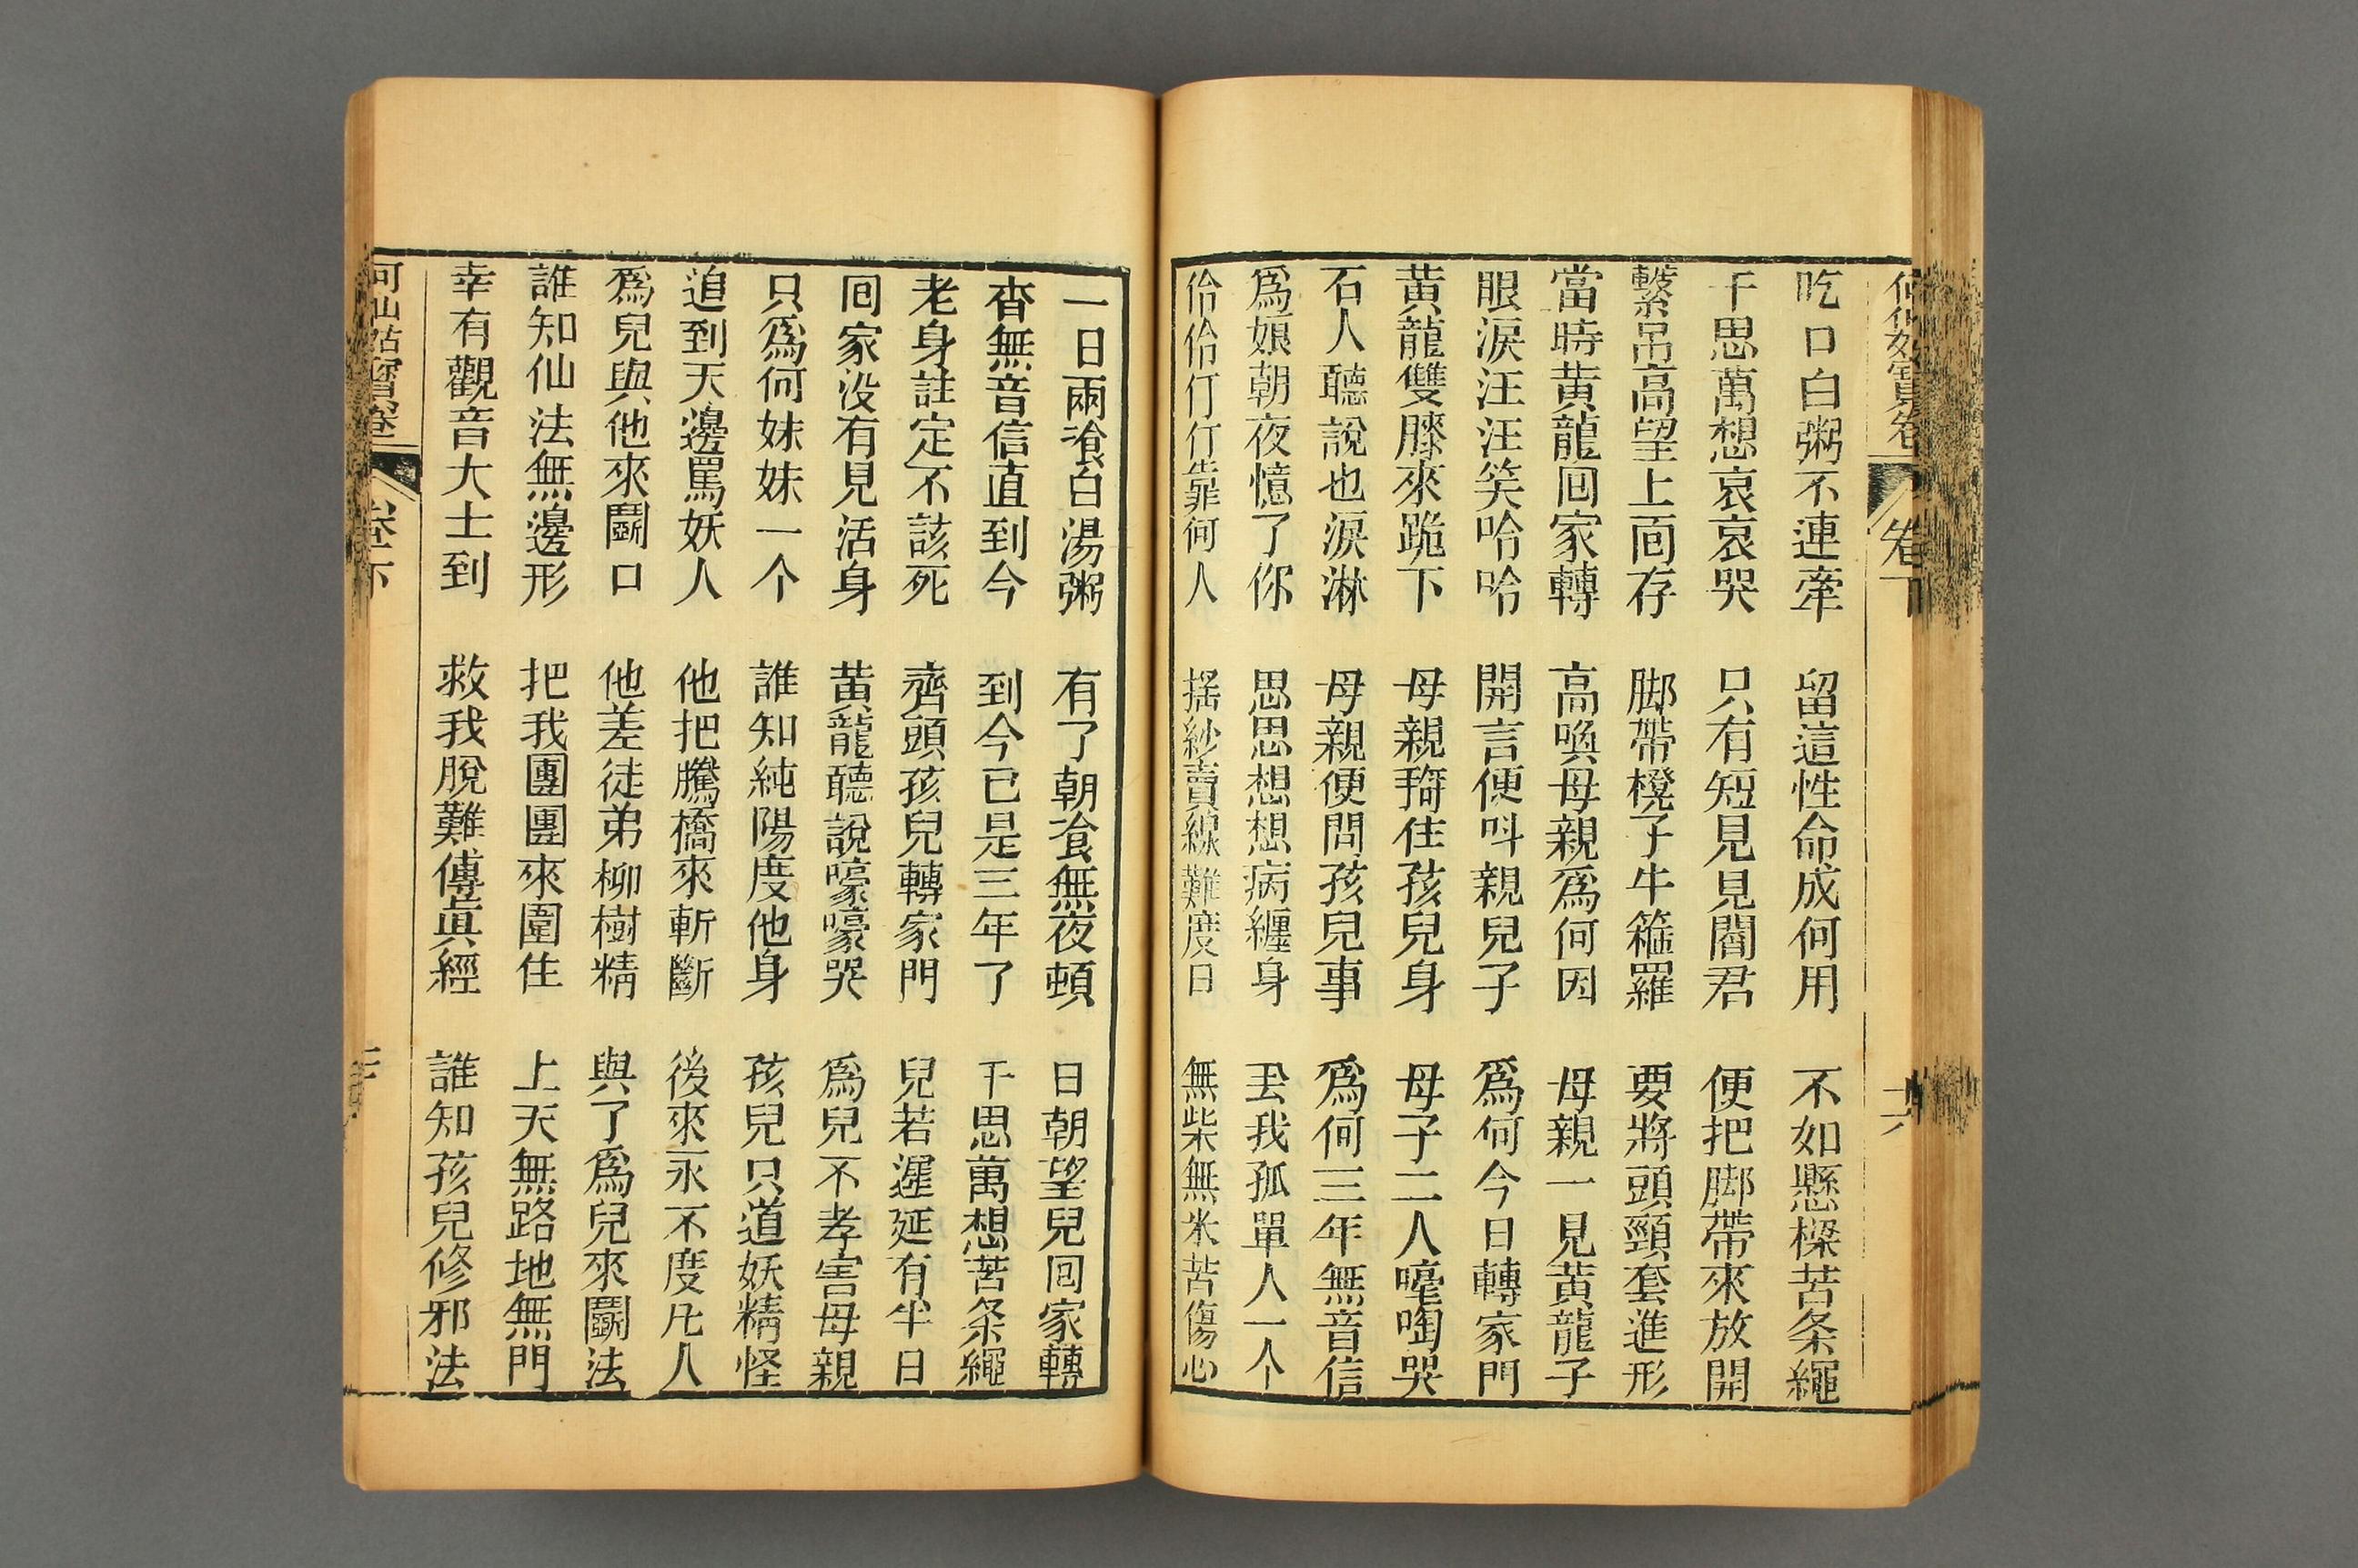 何仙姑寶卷 卷下 十六
吃口白粥不連牽 留這性命成何用 不如懸樑苦条繩
千思萬想哀哀哭 只有短見見閻君 便把脚帶來放開
繫吊高望上面存 脚帶櫈子牛箍羅 要將頭頸套進形
當時黄龍回家轉 高喚母親爲何因 母親一見黄龍子
眼淚汪汪笑哈哈 開言便呌親兒子 爲何今日轉家門
黄龍雙膝來跪下 母親掎住孩兒身 母子二人嚎啕哭
石人聽説也淚淋 母親便問孩兒事 爲何三年無音信
爲娘朝夜憶了你 思思想想病纏身 丟我孤單人一个
伶伶仃仃靠何人 摇紗賣線難度日 無柴無米苦傷心
一日兩飡白湯粥 有了朝飡無夜頓 日朝望兒回家轉
杳無音信直到今 到今已是三年了 千思萬想苦条繩
老身註定不該死 齊頭孩兒轉家門 兒若遲延有半日
回家没有見活身 黄龍聽説嚎嚎哭 爲兒不孝害母親
只爲何妹妹一个 誰知純陽度他身 孩兒只道妖精怪
追到天邊罵妖人 他把騰橋來斬斷 後來永不度凡人
爲兒與他來鬭口 他差徒弟柳樹精 與了爲兒來鬭法
誰知仙法無邊形 把我團團來圍住 上天無路地無門
幸有觀音大士到 救我脫難傳眞經 誰知孩兒修邪法
何仙姑寶卷 卷下